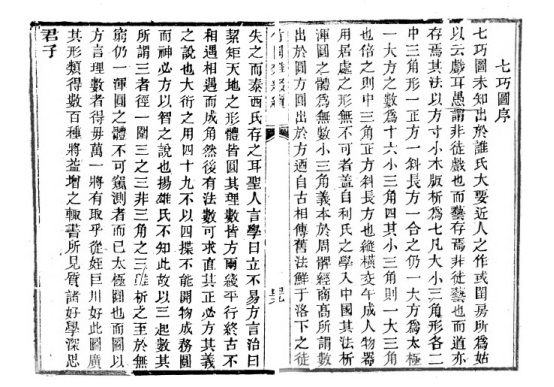 七巧圖序
七巧圖未知出於誰氏大要近人之作或閨房所爲姑
以云戲耳愚謂非徒戲也而藝存焉非徒藝也而道亦
存焉其法以方寸小木版析爲七凡大小三角形各二
中三角形一正方一斜長方一合之仍一方方爲太極
一大方之數爲十六小三角四其小三角則一大三角
也倍之則中三角正方斜長方也縱橫交午成人物器
用居處之形無不可者蓋自利氏之學入中國其法析
渾圓之體爲無數小三角義本於周髀經商高所謂數
出於圓方圓出於方適自古相傳舊法鮮于洛下之徒
失之而泰西氏存之耳聖人言學曰立不易方言治曰
絜矩天地之形體皆圓其理數皆方兩綫平行終古不
相遇相遇而成角然後有法數可求直其正必方其義
之說也大衍之用四十九不以四揲不能開物成務圓
而神必方以智之說也揚雄氏不知此故以三起數其
所謂三者徑一圍三之三非三角之三雖析之至於無
窮仍一渾圓之體不可窺測者而已太極圓也而圖以
方言理數者得毋萬一將有取乎從姪巨川好此圖廣
其形類得數百種將益增之輙書所見質諸好學深思
君子